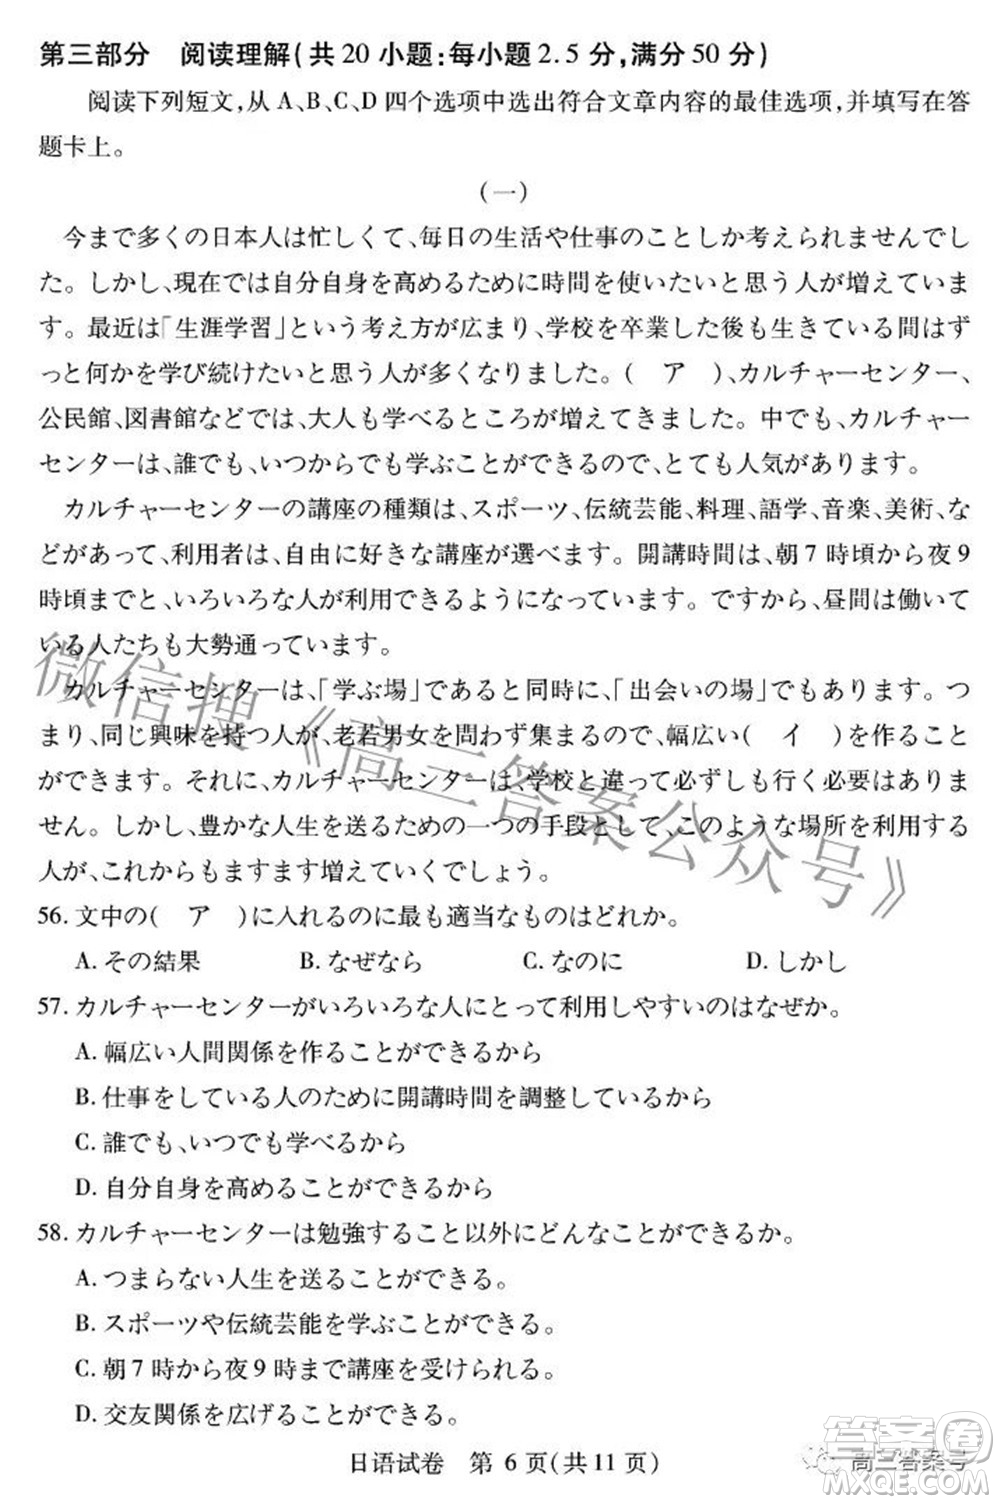 第三部分 阅读理解(共20小题:每小题2.5分,满分50分)
阅读下列短文,从A、B、C、D四个选项中选出符合文章内容的最佳选项,并填写在答
题卡上。
(一)
今まで多くの日本人は忙しくて、毎日の生活や仕事のことしか考えられませんでし
た。しかし、現在では自分自身を高めるために時間を使いたいと思う人が増えていま
す。最近は「生涯学習」という考え方が広まり、学校を卒業した後も生きている間はず
っと何かを学び続けたいと思う人が多くなりました。( ア )、カルチャーセンター、
公民館、図書館などでは、大人も学べるところが増えてきました。中でも、カルチャー
センターは、誰でも、いつからでも学ぶことができるので、とても人気があります。
カルチャーセンターの講座の種類は、スポーツ、伝統芸能、料理、語学、音楽、美術、な
どがあって、利用者は、自由に好きな講座が選べます。開講時間は、朝7時頃から夜9
時頃までと、いろいろな人が利用できるようになっています。ですから、昼間は働いて
いる人たちも大勢通っています。
カルチャーセンターは、「学ぶ場」であると同時に、「出会いの場」でもあります。つ
まり、同じ興味を持つ人が、老若男女を問わず集まるので、幅広い( イ )を作ること
ができます。さらに、カルチャーセンターは、学校と違って必ずしも行く必要はありま
せん。しかし、豊かな人生を送るための一つの手段として、このような場所を利用する
人が、これからもますます増えていくでしょう。
56. 文中の( ア )に入れるのに最も適当なものはどれか。
A. その結果 B. なぜなら C. なのに D. しかし
57. カルチャーセンターがいろいろな人にとって利用しやすいのはなぜか。
A. 幅広い人間関係を作ることができるから
B. 仕事をしている人のために開講時間を調整しているから
C. 誰でも、いつでも学べるから
D. 自分自身を高めることができるから
58. カルチャーセンターは勉強すること以外にどんなことができるか。
A. つまらない人生を送ることができる。
B. スポーツや伝統芸能を学ぶことができる。
C. 朝7時から夜9時まで講座を受けられる。
D. 交友関係を広げることができる。
日语试卷 第6页(共11页)
微信搜《高三答案公众号》
高三答案号
答案圈
MXQE.COM